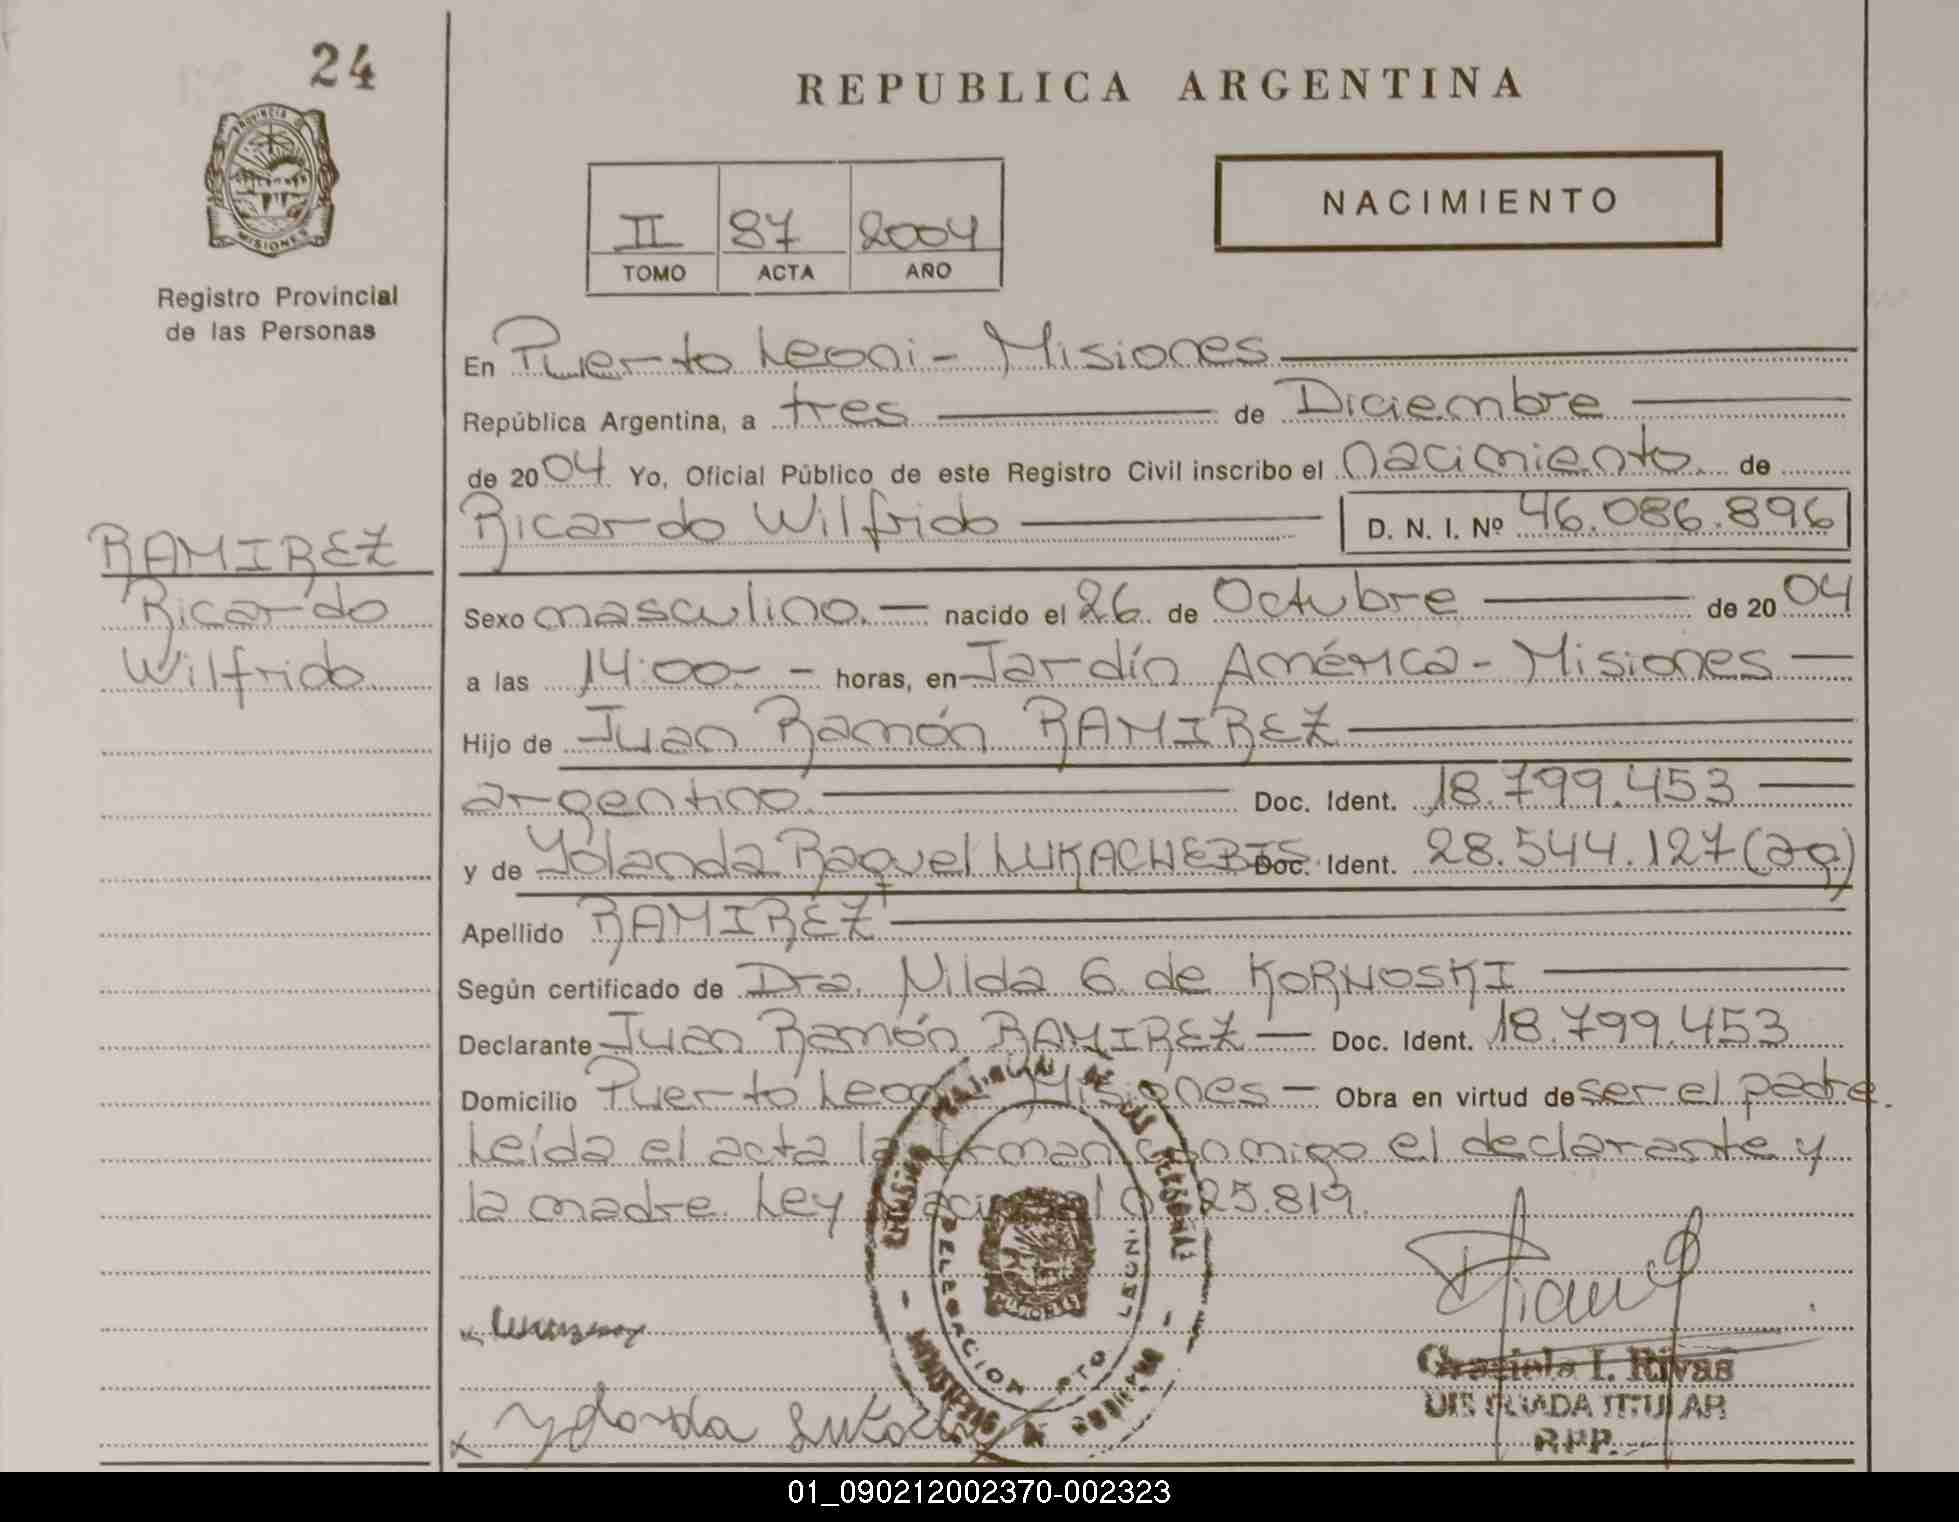 24
REPUBLICA ARGENTINA
PROVINCIA D
MISIONES
Registro Provincial
de las Personas
NACIMIENTO
II 87 2004
TOMO ACTA AÑO
En Puerto Leoni - Misiones
República Argentina, a tres de Diciembre
de 2004 Yo, Oficial Público de este Registro Civil inscribo el nacimiento de
Ricardo Wilfrido D. N. I. Nº 46.086.896
RAMIREZ
Ricardo
Wilfrido
Sexo masculino. — nacido el 26 de Octubre — de 2004
a las 14:00 - horas, en Jardín América - Misiones —
Hijo de Juan Ramón RAMIREZ
argentino Doc. Ident. 18.799.453 —
y de Yolanda Raquel LUKACHEBIS Doc. Ident. 28.544.127 (ag)
Apellido RAMIREZ
Según certificado de Dra. Nilda G. de KORNOSKI
Declarante Juan Ramón RAMIREZ — Doc. Ident. 18.799.453
Domicilio Puerto Leoni Misiones — Obra en virtud de ser el padre.
Leída el acta la firman conmigo el declarante y
la madre. Ley Nacional 25.819.
DELEGACION PTO LEONI
MISIONES
Yolanda
Graciela I. Rivas
TITULAR
R.P.P.
01_090212002370-002323